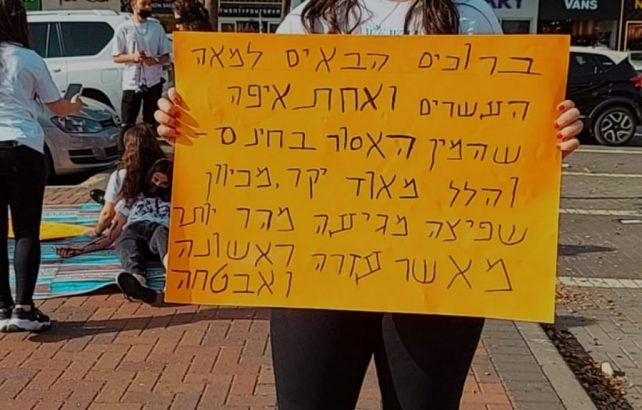 ברוכים הבאים למאה
העשרים ואחת איפה
שהמין האסור בחינם -
והלל מאוד יקר. מכיוון
שפיצה מגיעה מהר יותר
מאשר עזרה ראשונה
ואבטחה
VANS